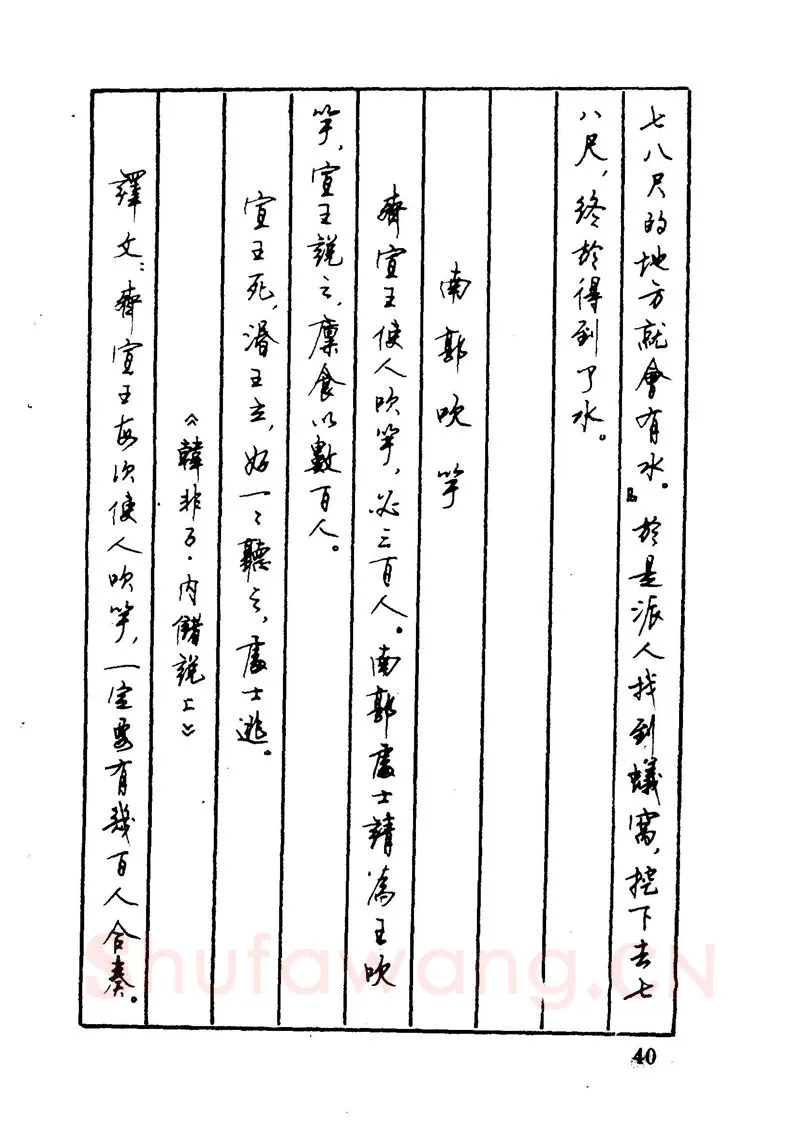 七八尺的地方就會有水。』於是派人找到蟻窩，挖下去七
八尺，終於得到了水。
南郭吹竽
齊宣王使人吹竽，必三百人。南郭處士請為王吹
竽，宣王說之，廩食以數百人。
宣王死，湣王立，好一〻聽之，處士逃。
《韓非子·內儲說上》
譯文：齊宣王每次使人吹竽，一定要有幾百人合奏。
40
Shufawang.CN